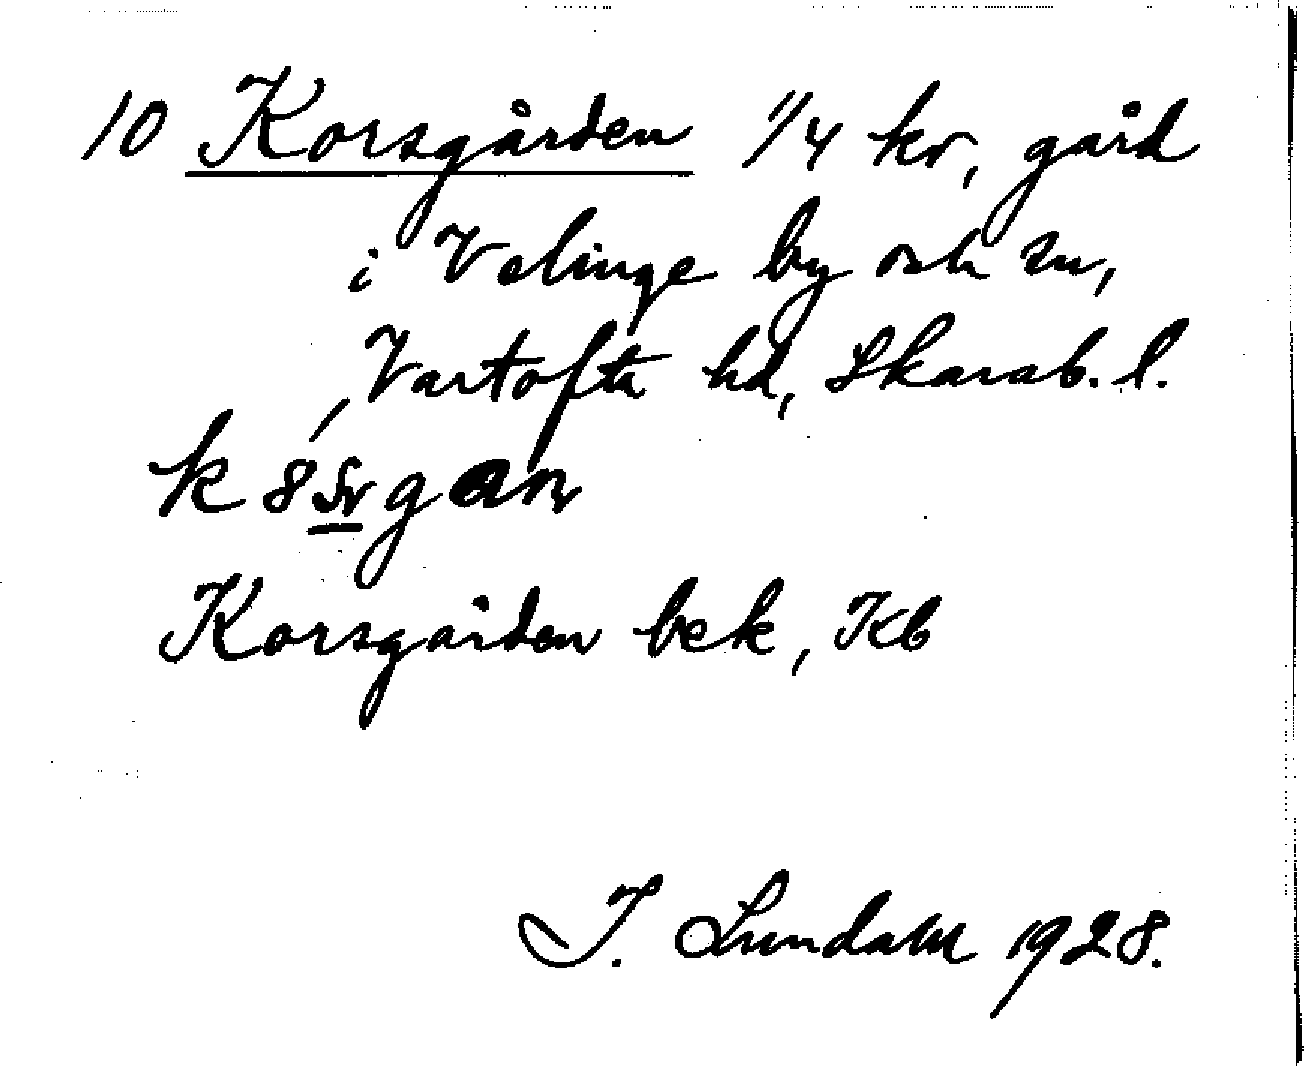 10 Korsgården 1/4 kr, gård
i Valinge by och sn,
Vartofta hd, Skarab. l.
Korsgården bek, Kb
I. Lundahl 1928.